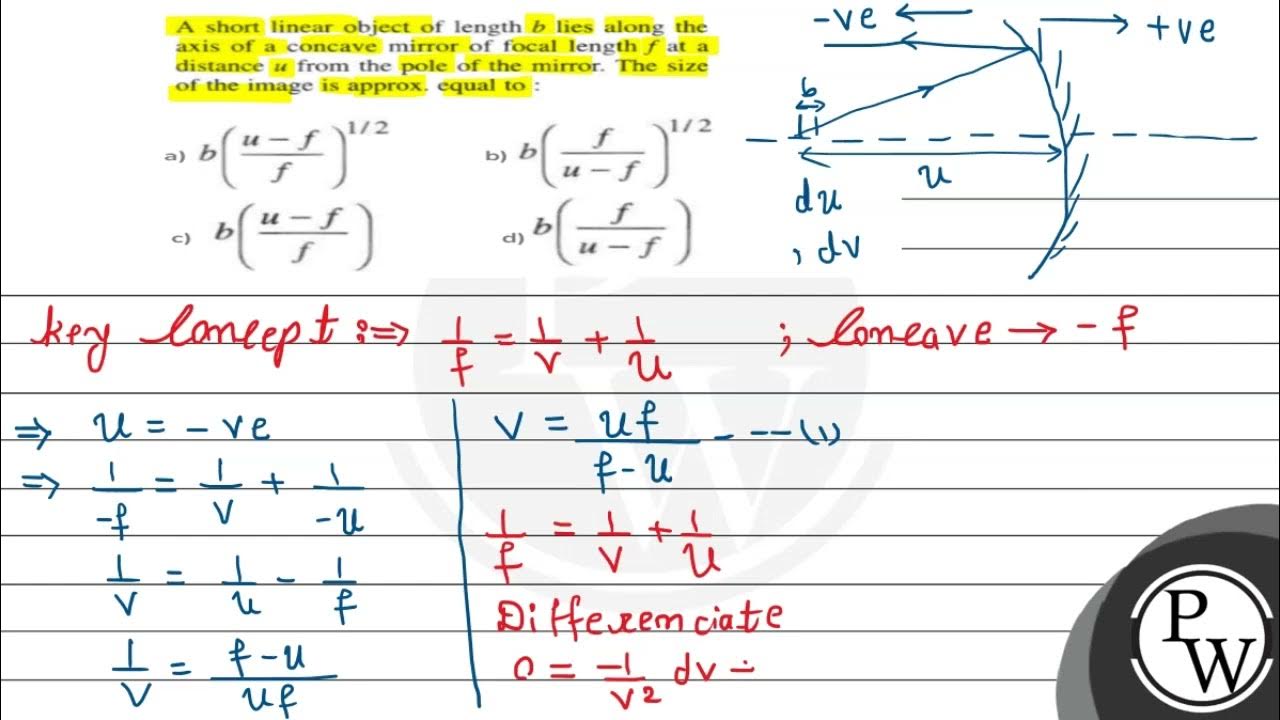 A short linear object of length b lies along the
axis of a concave mirror of focal length f at a
distance u from the pole of the mirror. The size
of the image is approx. equal to :
a) b((u − f)/f)^1/2
b) b(f/(u − f))^1/2
c) b((u − f)/f)
d) b(f/(u − f))
-ve ← → +ve
b
u
du
, dv
Key Concept :⇒ 1/f = 1/v + 1/u ; Concave → - f
⇒ u = - ve
⇒ 1/-f = 1/v + 1/-u
1/v = 1/u - 1/f
1/v = f-u/uf
v = uf/f-u - -- (1)
1/f = 1/v + 1/u
Differenciate
0 = -1/v2 dv -
PW